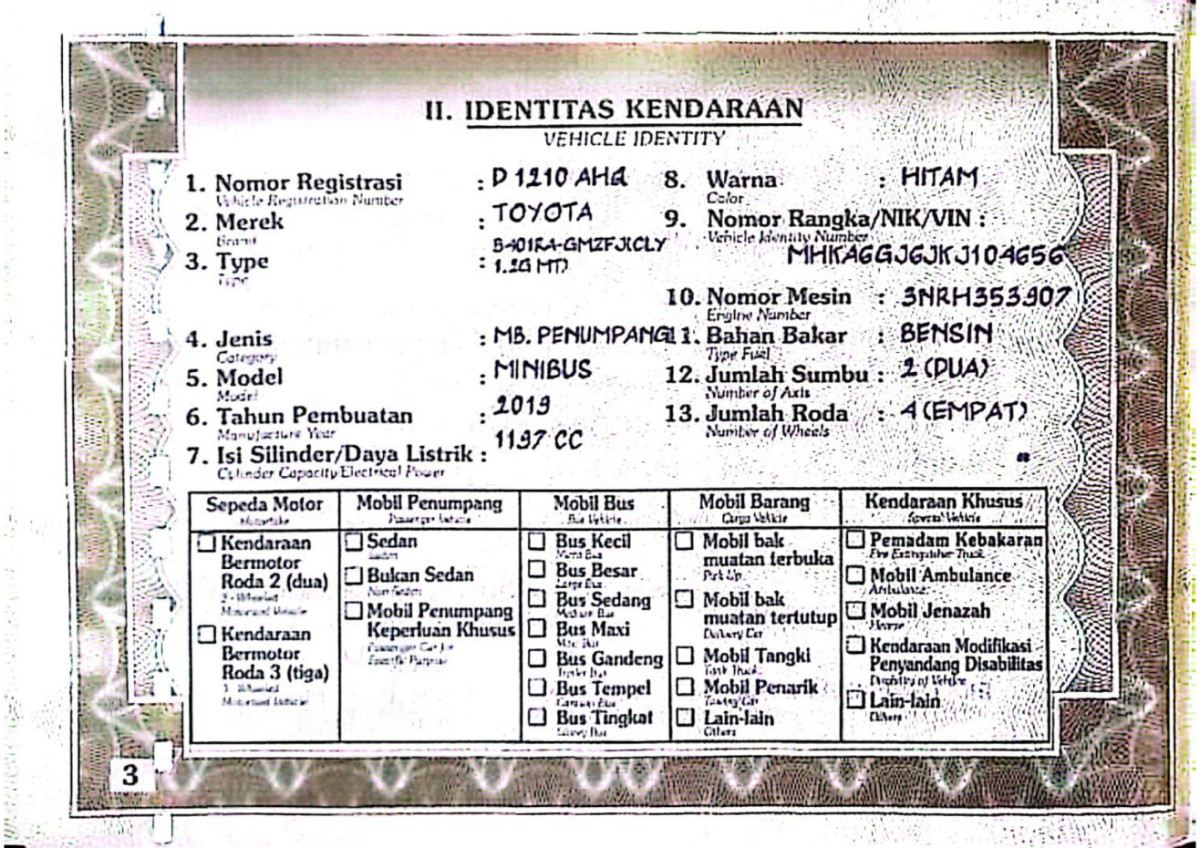 II. IDENTITAS KENDARAAN
VEHICLE IDENTITY
1. Nomor Registrasi : D 1210 AHQ
Vehicle Registration Number
2. Merek : TOYOTA
Brand
3. Type : B401RA-GMZFJ(CLY
Type 1.2G MT)
4. Jenis : MB. PENUMPANG
Category
5. Model : MINIBUS
Model
6. Tahun Pembuatan : 2019
Manufacture Year
7. Isi Silinder/Daya Listrik : 1197 CC
Cylinder Capacity/Electrical Power
8. Warna : HITAM
Color
9. Nomor Rangka/NIK/VIN :
Vehicle Identity Number
MHKA6GJ6JKJ104656
10. Nomor Mesin : 3NRH353907
Engine Number
11. Bahan Bakar : BENSIN
Type Fuel
12. Jumlah Sumbu : 2 (DUA)
Number of Axis
13. Jumlah Roda : 4 (EMPAT)
Number of Wheels
Sepeda Motor
Kendaraan
Bermotor
Roda 2 (dua)
2 - Wheeled
Motorized Vehicle
Kendaraan
Bermotor
Roda 3 (tiga)
3 - Wheeled
Motorized Vehicle
Mobil Penumpang
Passenger Vehicle
Sedan
Sedan
Bukan Sedan
Non Sedan
Mobil Penumpang
Keperluan Khusus
Passenger Car for
Specific Purpose
Mobil Bus
Bus Vehicle
Bus Kecil
Micro Bus
Bus Besar
Large Bus
Bus Sedang
Medium Bus
Bus Maxi
Maxi Bus
Bus Gandeng
Bus Tempel
Bus Tingkat
Mobil Barang
Cargo Vehicle
Mobil bak
muatan terbuka
Pick Up
Mobil bak
muatan tertutup
Delivery Car
Mobil Tangki
Tank Truck
Mobil Penarik
Towing Car
Lain-lain
Others
Kendaraan Khusus
Special Vehicle
Pemadam Kebakaran
Fire Extinguisher Truck
Mobil Ambulance
Ambulance
Mobil Jenazah
Hearse
Kendaraan Modifikasi
Penyandang Disabilitas
Disability of Vehicle
Lain-lain
Others
3